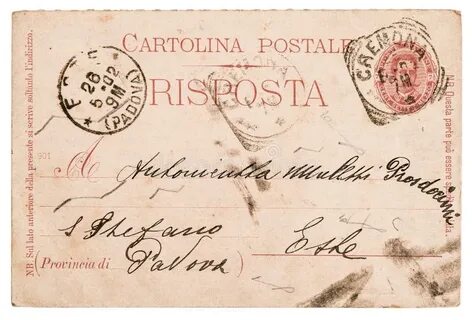 CARTOLINA POSTALE
RISPOSTA
CREMONA
CREMONA
ESTE
26
5 02
9M
(PADOVA)
901
A
Mulletti Prosdocimi
S Stefano
Este
(Provincia di Padova)
NB. Sul lato anteriore della presente si scrive soltanto l'indirizzo.
NB. Questa parte può essere